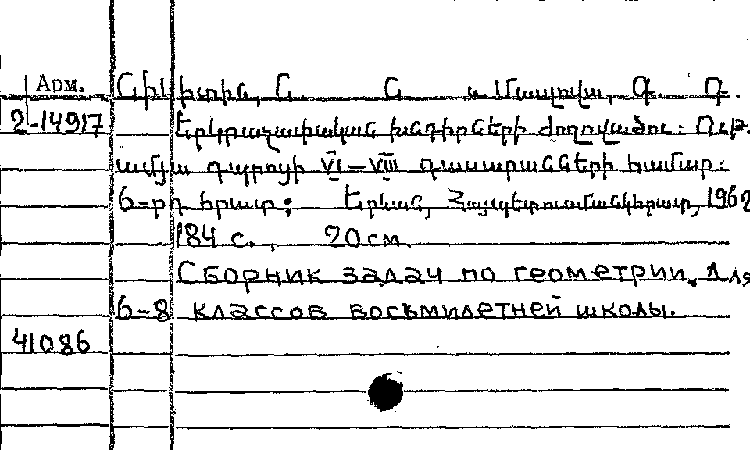 Арм. Նիկիտին, Ն. Ն. և Մասլովա, Գ. Գ.
2-14917 Երկրաչափական խնդիրների ժողովածու: Ութ.
ամյա դպրոցի VI–VIII դասարանների համար:
6-րդ հրատ; Երևան, Հայպետուսմանկհրատ, 1962
184 с., 20 см.
Сборник задач по геометрии. Для
6-8 классов восьмилетней школы.
41086